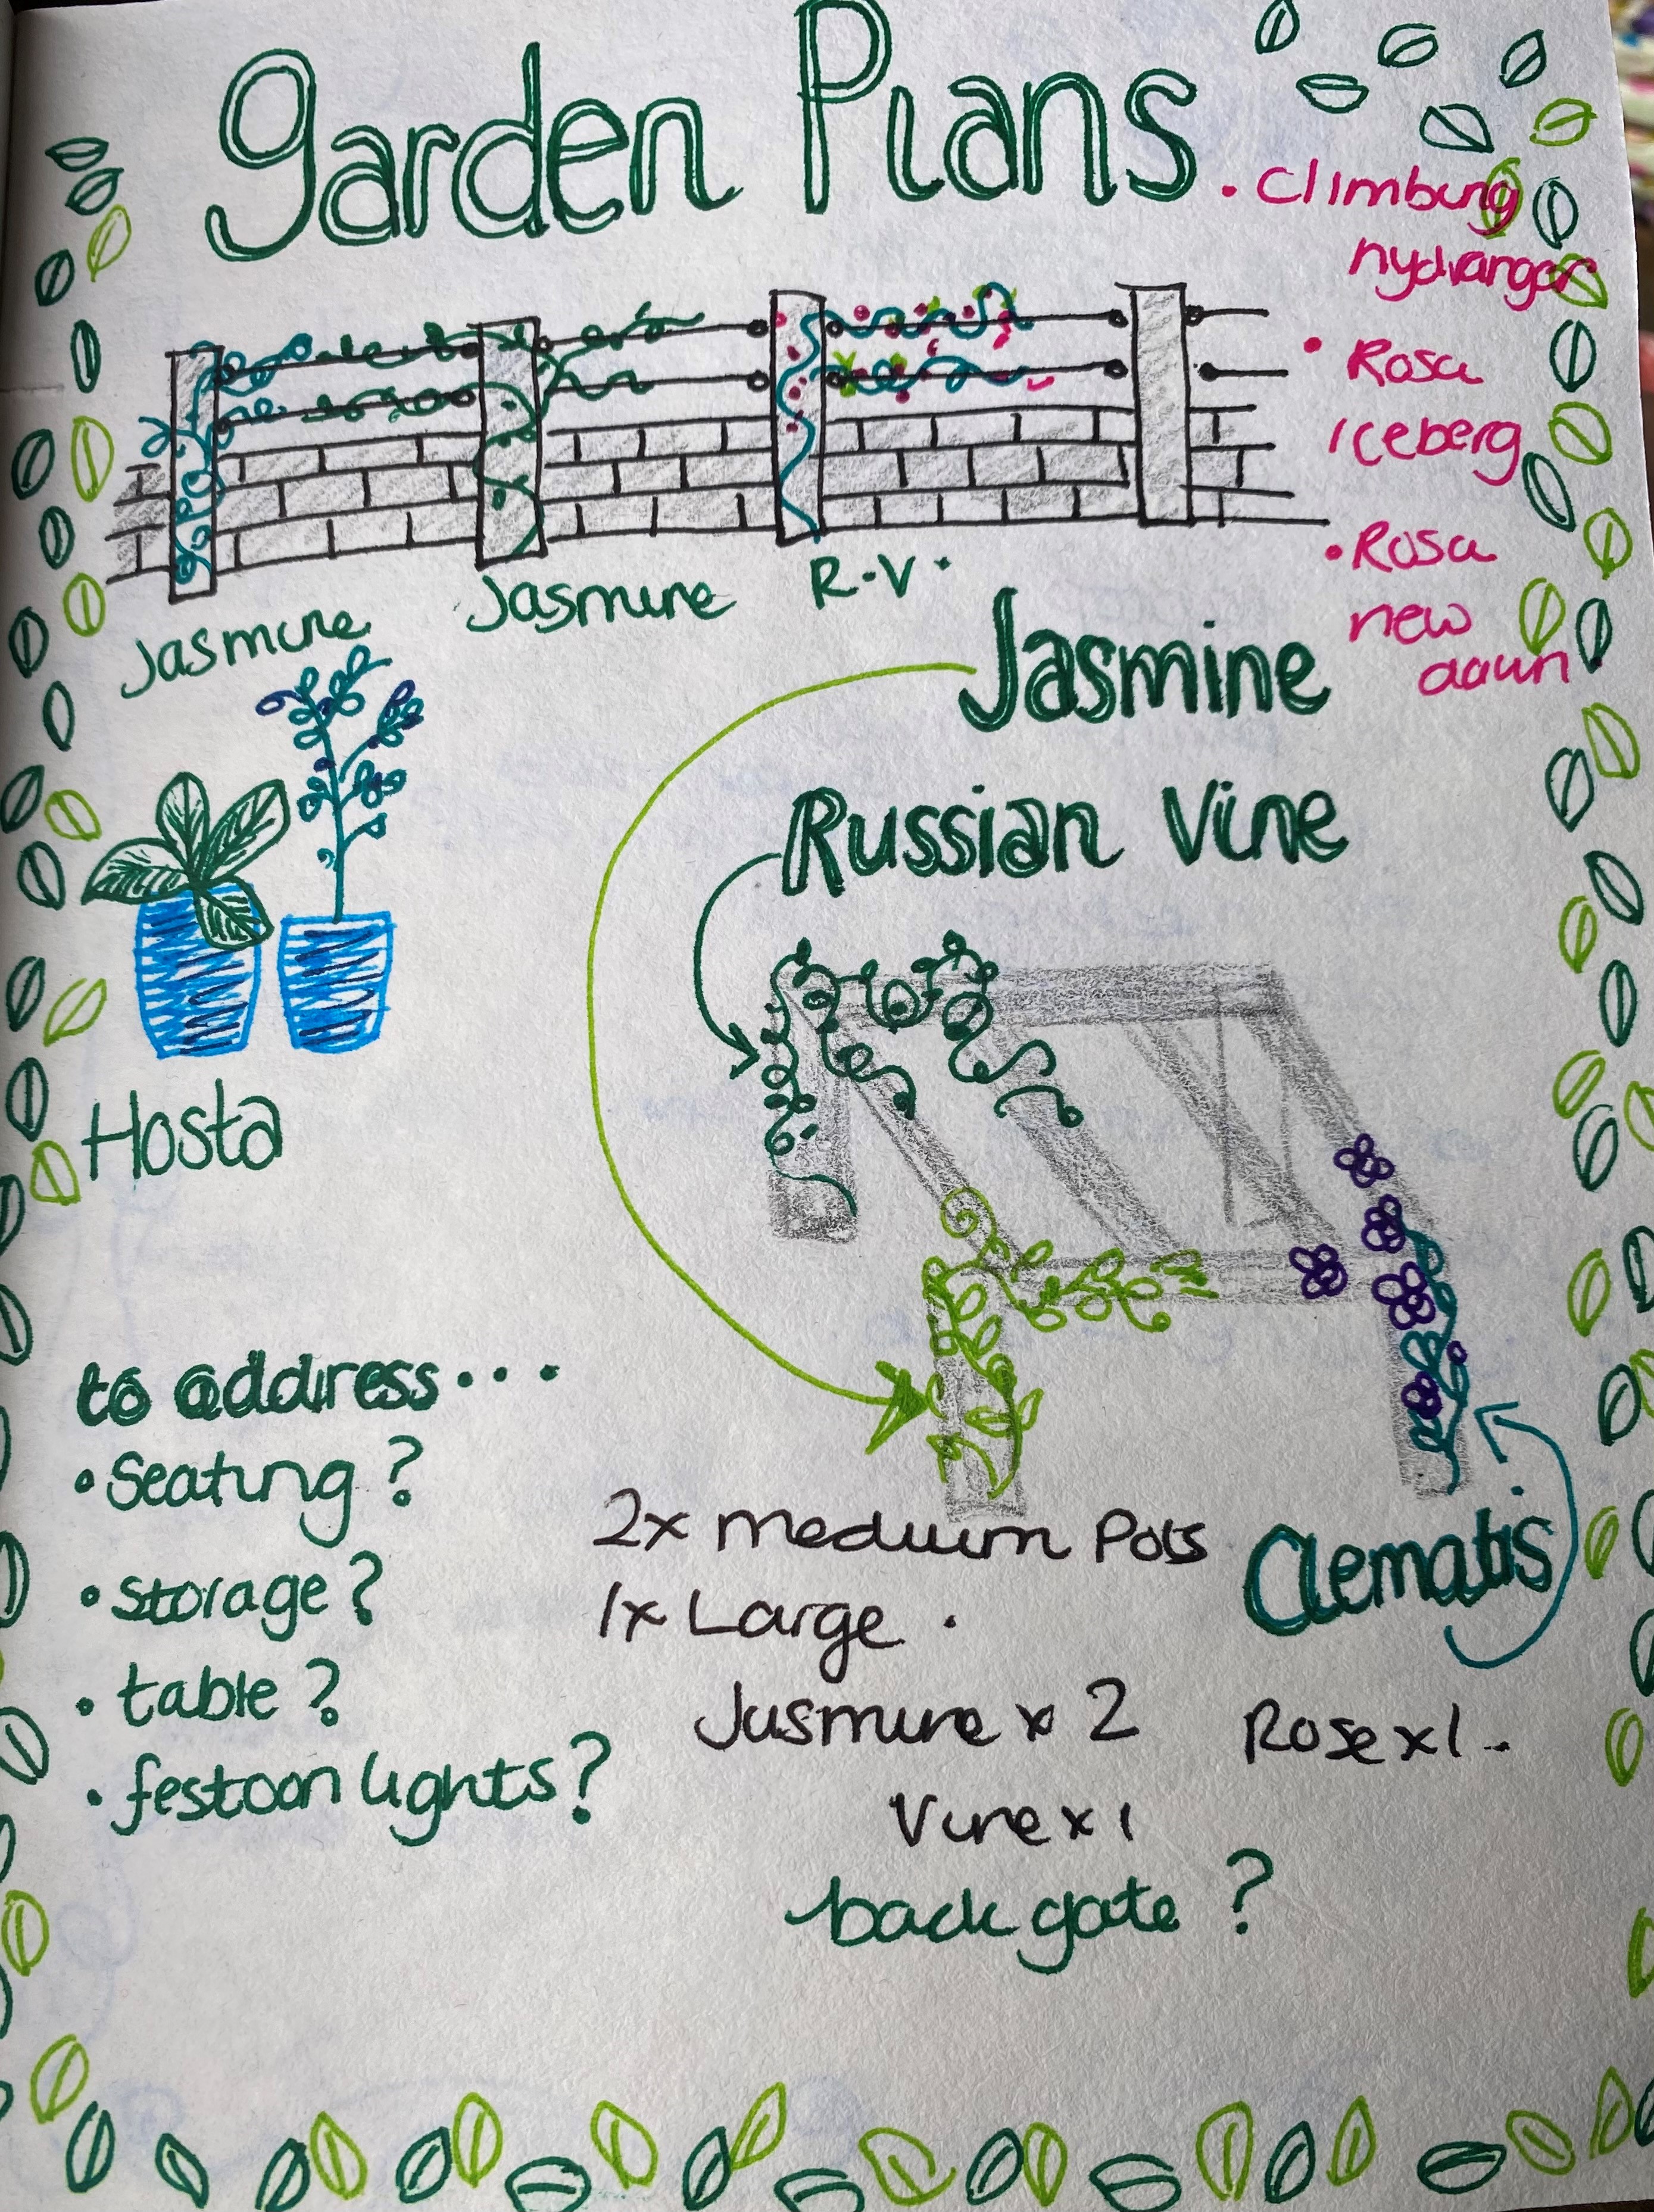 garden Plans
• Climbing
hydrangea
• Rosa
Iceberg
• Rosa
new
dawn
Jasmine
Jasmine
R.V.
Jasmine
Russian Vine
Hosta
to address...
• Seating?
• storage?
• table?
• festoon lights?
Clematis
2x medium Pots
1x Large.
Jasmine x 2
Rose x1.
Vine x 1
back gate ?